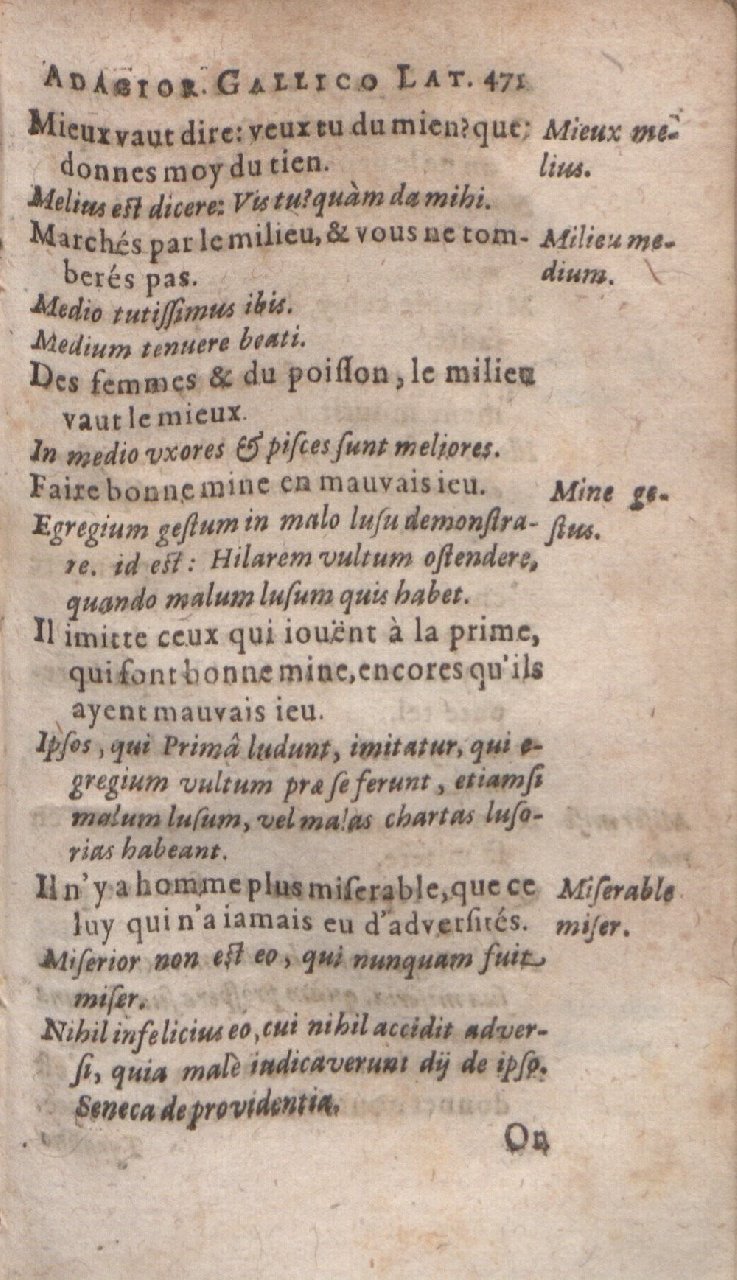 ADAGIOR. GALLICO LAT. 471
Mieux vaut dire: veux tu du mien? que;
donnes moy du tien.
Mieux me-
lius.
Melius est dicere: Vis tu? quàm da mihi.
Marchés par le milieu, & vous ne tom-
berés pas.
Milieu me-
dium.
Medio tutißimus ibis.
Medium tenuere beati.
Des femmes & du poisson, le milieu
vaut le mieux.
In medio vxores & pisces sunt meliores.
Faire bonne mine en mauvais ieu.
Mine ge-
stus.
Egregium gestum in malo lusu demonstra-
re. id est: Hilarem vultum ostendere,
quando malum lusum quis habet.
Il imitte ceux qui iouënt à la prime,
qui font bonne mine, encores qu'ils
ayent mauvais ieu.
Ipsos, qui Primâ ludunt, imitatur, qui e-
gregium vultum præ se ferunt, etiamsi
malum lusum, vel malas chartas luso-
rias habeant.
Il n'y a homme plus miserable, que ce
luy qui n'a iamais eu d'adversités.
Miserable
miser.
Miserior non est eo, qui nunquam fuit
miser.
Nihil infelicius eo, cui nihil accidit adver-
si, quia malè iudicaverunt dij de ipso.
Seneca de providentia.
On